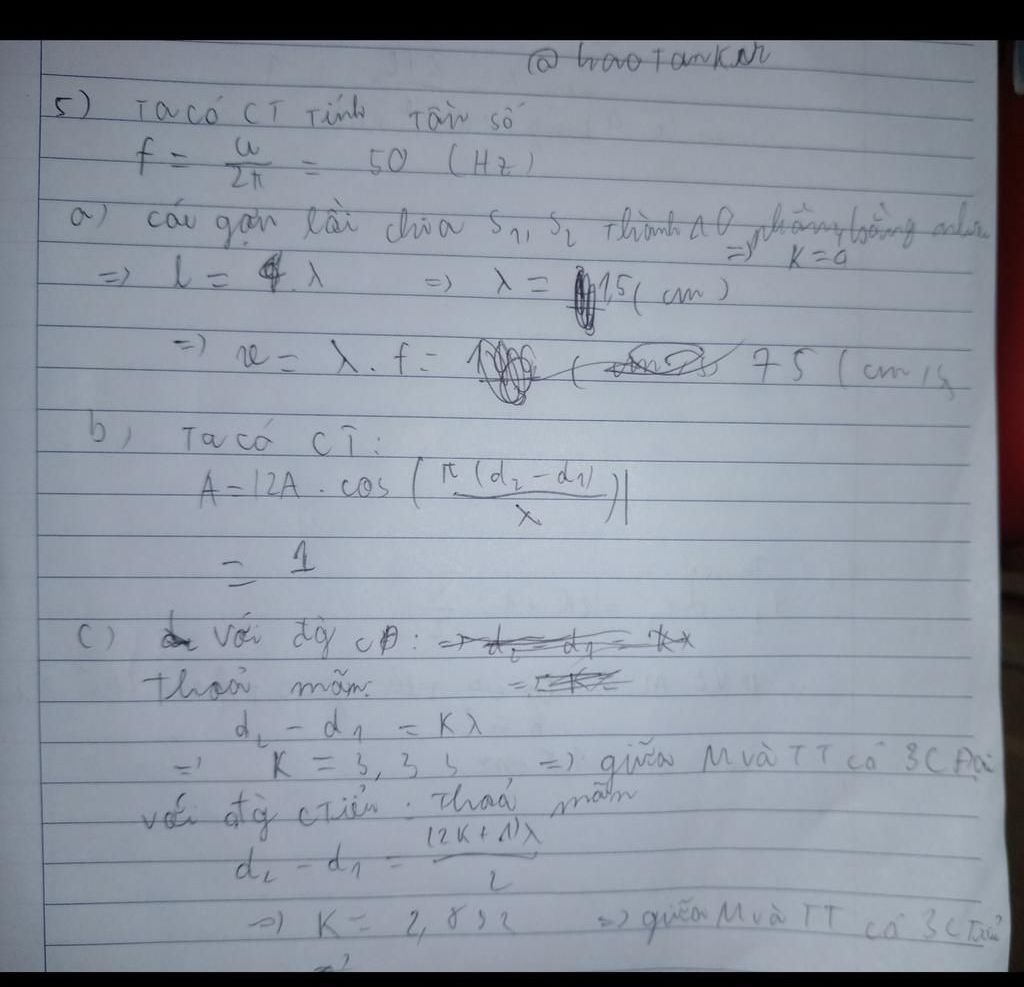 @haotankar
5) Ta có CT Tính Tần số
f = ω/2π = 50 (Hz)
a) các gợn lồi chia S₁, S₂ thành 10 phần bằng nhau
=> K = 9
=> l = 9.λ => λ = 1,5 (cm)
=> v = λ.f = 75 (cm/s
b) Ta có CT:
A = |2A . cos (π(d₂ - d₁)/λ)|
= 1
c) với đg CĐ:
thoả mãn:
d₂ - d₁ = Kλ
=> K = 3,33 => giữa M và TT có 3 C Đại
với đg CTiểu : Thoả mãn
d₂ - d₁ = (2K + 1)λ/2
=> K = 2,832 => giữa M và TT có 3 CTiểu